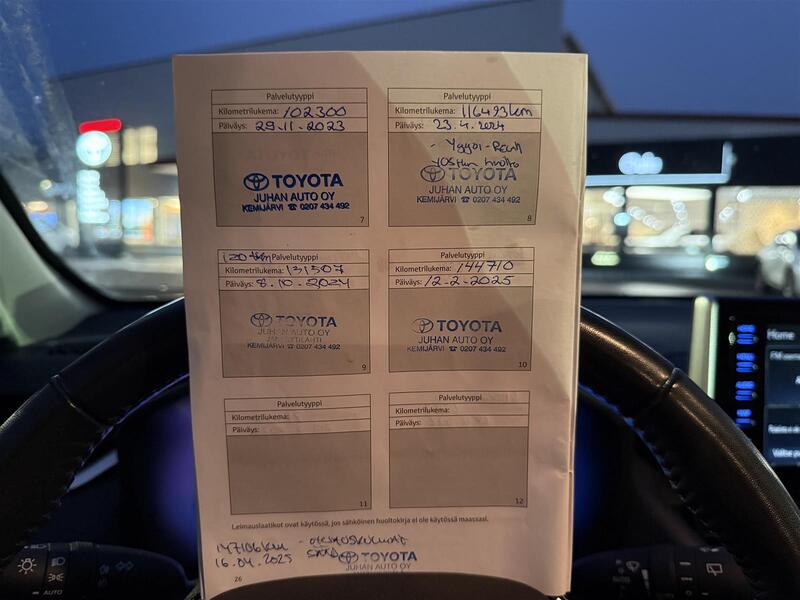 Palvelutyyppi
Kilometrilukema: 102300
Päiväys: 29.11.2023
TOYOTA
JUHAN AUTO OY
KEMIJÄRVI ☎ 0207 434 492
7
Palvelutyyppi
Kilometrilukema: 116493km
Päiväys: 23.4.2024
TOYOTA
JUHAN AUTO OY
KEMIJÄRVI ☎ 0207 434 492
8
Palvelutyyppi
Kilometrilukema: 131507
Päiväys: 8.10.2024
TOYOTA
JUHAN AUTO OY
KEMIJÄRVI ☎ 0207 434 492
9
Palvelutyyppi
Kilometrilukema: 144710
Päiväys: 12-2-2025
TOYOTA
JUHAN AUTO OY
KEMIJÄRVI ☎ 0207 434 492
10
Palvelutyyppi
Kilometrilukema:
Päiväys:
11
Palvelutyyppi
Kilometrilukema:
Päiväys:
12
Leimauslaatikot ovat käytössä, jos sähköinen huoltokirja ei ole käytössä maassasi.
147106km
16.04.2025
TOYOTA
JUHAN AUTO OY
26
AUTO
Home